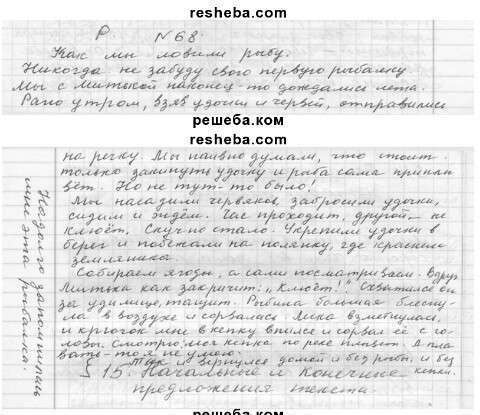 resheba.com
Р. №68.
Как мы ловили рыбу.
Никогда не забуду свою первую рыбалку
Мы с Митькой наконец-то дождались лета.
Рано утром, взяв удочки и червей, отправились
решеба.ком
resheba.com
на речку. Мы наивно думали, что стоит
только закинуть удочку и рыба сама приплы
вёт. Но не тут-то было!
Мы насадили червяков, забросили удочки,
сидим и ждём. Час проходит, другой – не
клюёт. Скучно стало. Укрепили удочки в
берег и побежали на полянку, где краснела
земляника.
Собираем ягоды, а сами посматриваем. Вдруг
Митька как закричит: „Клюёт!" Схватился он
за удилище, тащит. Рыбина большая блесну-
ла в воздухе и сорвалась. Леска взметнулась,
и крючок мне в кепку впился и сорвал её с го-
ловы. Смотрю, моя кепка по реке плывёт. А пла
вать-то я не умею.
Так и вернулся домой и без рыбы, и без
кепки.
Надолго запомнилась
мне эта рыбалка.
15. Начальные и конечные
предложения текста.
решеба.ком